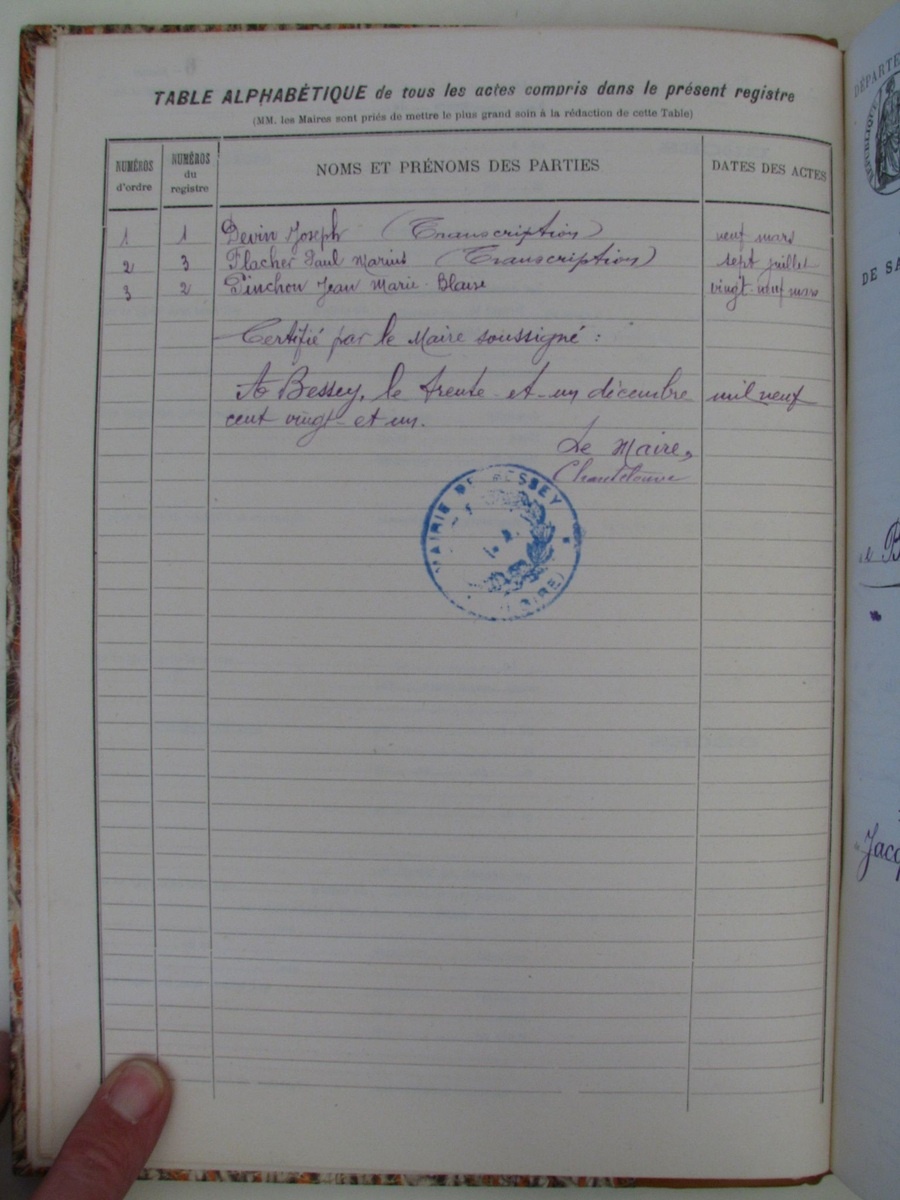 TABLE ALPHABÉTIQUE de tous les actes compris dans le présent registre
(MM. les Maires sont priés de mettre le plus grand soin à la rédaction de cette Table)
NUMÉROS d'ordre NUMÉROS du registre NOMS ET PRÉNOMS DES PARTIES DATES DES ACTES
1 1 Devin Joseph (Transcription) neuf mars
2 3 Flacher Paul Marius (Transcription) sept juillet
3 2 Pinchon Jean Marie Blaise vingt-neuf mars
Certifié par le Maire soussigné :
A Bessey, le trente et un décembre mil neuf
cent vingt et un.
Le Maire,
MAIRIE DE BESSEY
(LOIRE)
DÉPARTE
RÉPUBLIQUE
DE SA
Jacq